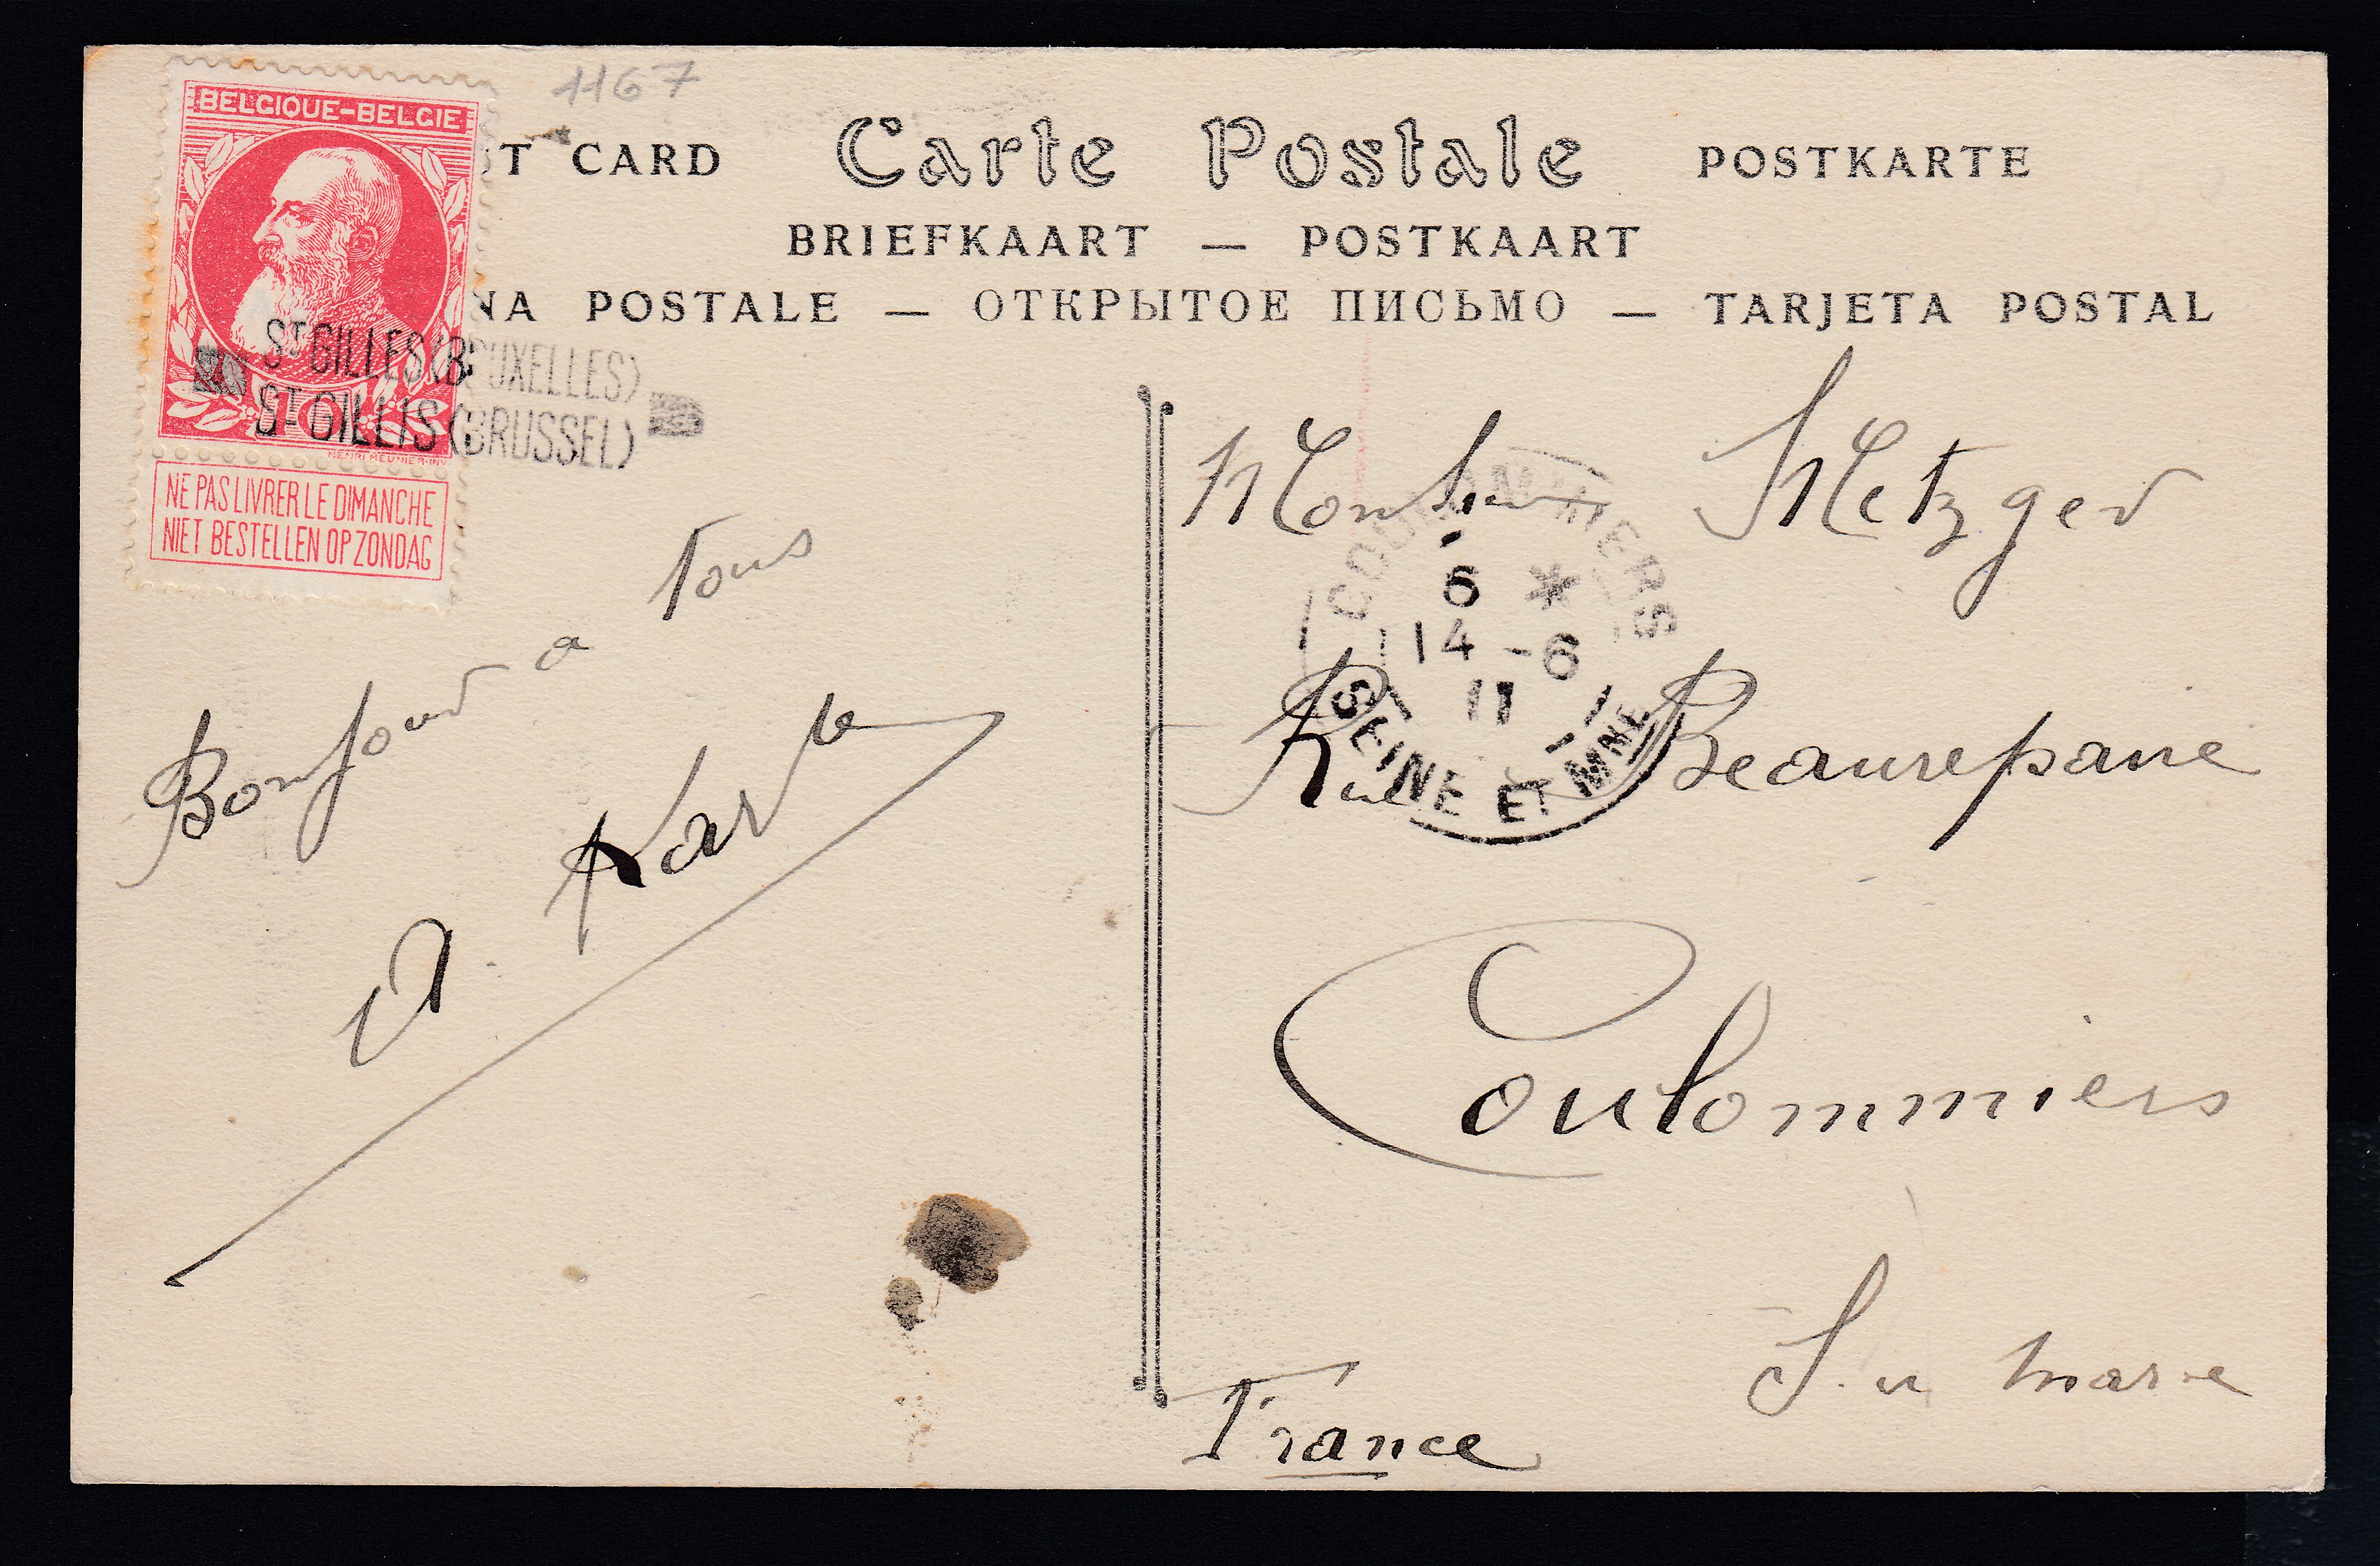 1167
BELGIQUE-BELGIE
ST CARD Carte Postale POSTKARTE
BRIEFKAART — POSTKAART
NA POSTALE — ОТКРЫТОЕ ПИСЬМО — TARJETA POSTAL
ST GILLES (BRUXELLES)
ST GILLIS (BRUSSEL)
10
HENRI MEUNIER. INV.
NE PAS LIVRER LE DIMANCHE
NIET BESTELLEN OP ZONDAG
Bonjour a Tous
A.
Monsieur Metzger
Rue Beaurepaire
Coulommiers
S. et marne
France
COULOMMIERS
6 *
14 - 6
11
SEINE ET MNE